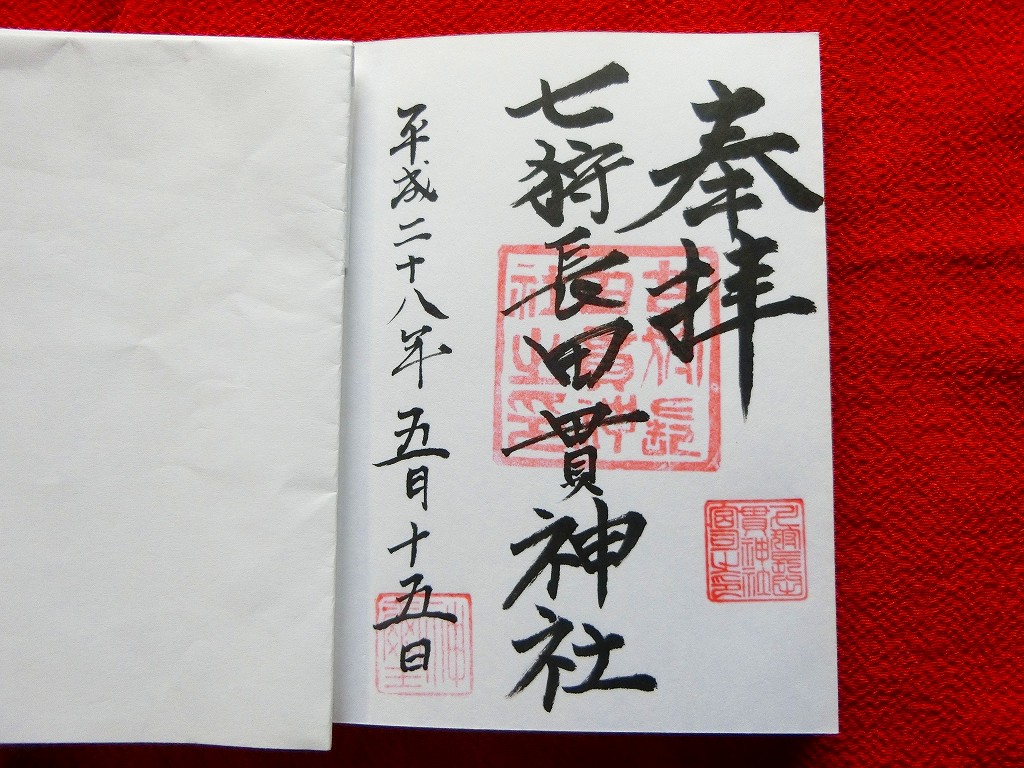 奉拝
七狩長田貫神社
平成二十八年五月十五日